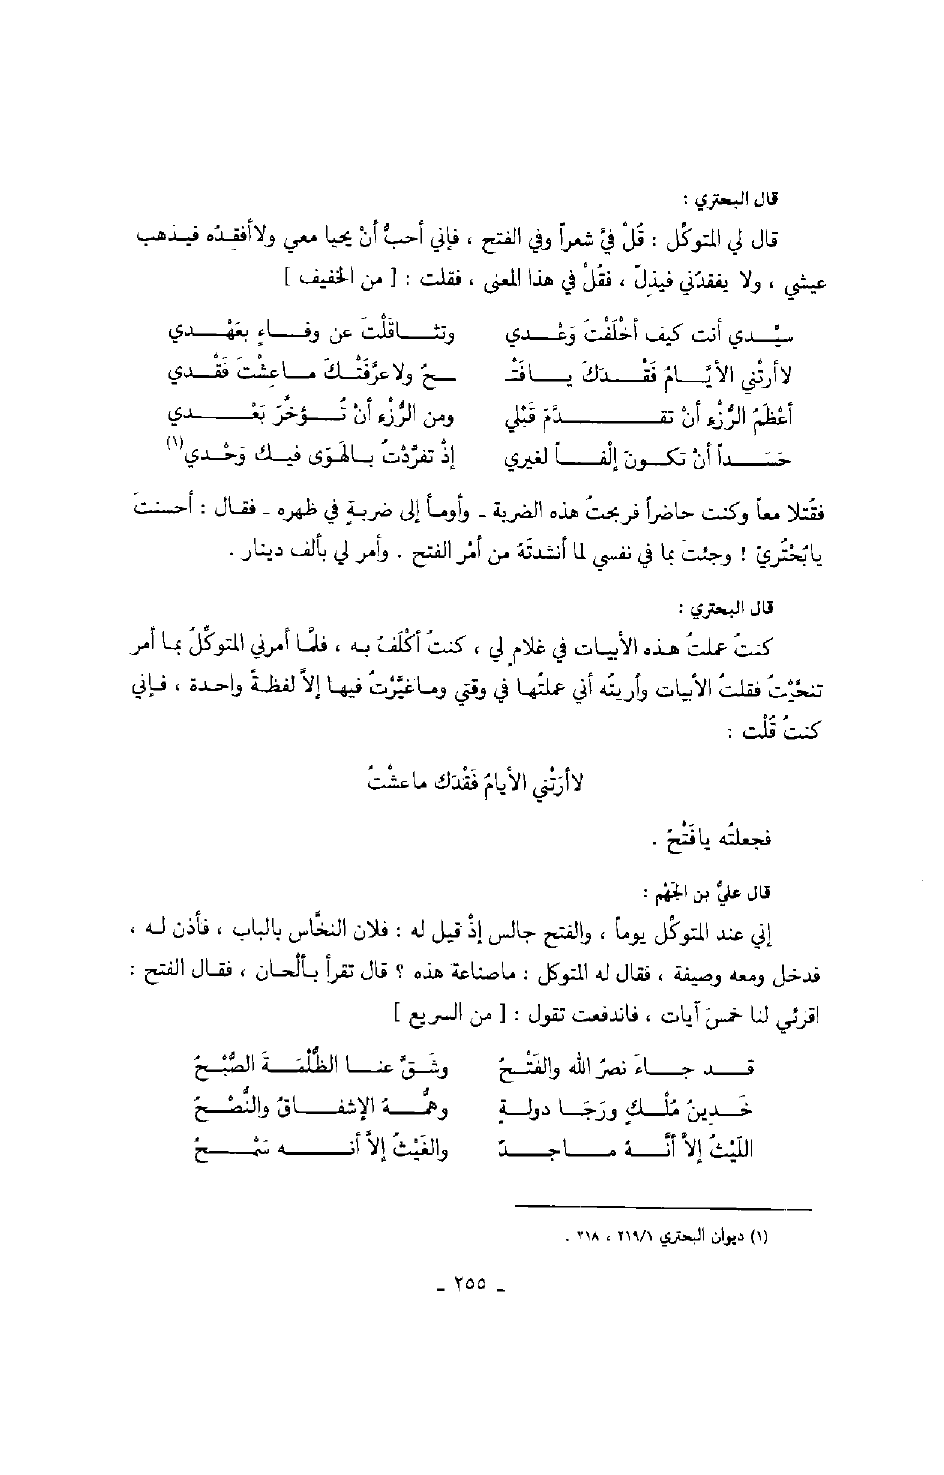 قال البحتري :
قال لي المتوكّل : قُلْ فيَّ شعراً وفي الفتح ، فإني أحبُّ أنْ يحيا معي ولاأفقِدُه فيذهب
عيشي ، ولا يفقدُني فيذِلّ ، فقُلْ في هذا المعنى ، فقلت : [ من الخفيف ]
سيّدي أنت كيف أخْلَفْتَ وَعْدي وتثاقَلْتَ عن وفاءٍ بعَهْدي
لاأرتْني الأيّامُ فَقْدَكَ يافَتْـ ـحُ ولاعرَّفَتْكَ ماعِشْتَ فَقْدي
أعْظَمُ الرُّزْء أنْ تقدَّمَ قَبْلي ومن الرُّزْء أنْ تُؤخَّرَ بَعْدي
حَسَداً أنْ تكونَ إلْفاً لغيري إذْ تفرَّدْتُ بالهَوى فيك وَحْدي(١)
فقُتلا معاً وكنت حاضراً فربحتُ هذه الضربة ـ وأومأ إلى ضربةٍ في ظهره ـ فقال : أحسنتَ
يابُحْتُريّ ! وجئتَ بما في نفسي لما أنشدتُه من أمْر الفتح . وأمر لي بألف دينار .
قال البحتري :
كنتُ عملتُ هذه الأبيات في غلامٍ لي ، كنتُ أكْلَفُ به ، فلمّا أمرني المتوكّلُ بما أمر
تنحَّيْتُ فقلتُ الأبيات وأريتُه أني عملتُها في وقتي وماغيَّرْتُ فيها إلاّ لفظةً واحدة ، فإني
كنتُ قُلْت :
لاأرَتْني الأيامُ فَقْدَك ماعشْتُ
فجعلتُه يافَتْحُ .
قال عليُّ بن الجَهْم :
إني عند المتوكّل يوماً ، والفتح جالس إذْ قيل له : فلان النخَّاس بالباب ، فأذن له ،
فدخل ومعه وصيفة ، فقال له المتوكل : ماصناعة هذه ؟ قال تقرأ بألحان ، فقال الفتح :
اقرئي لنا خمسَ آيات ، فاندفعت تقول : [ من السريع ]
قد جاءَ نصرُ الله والفَتْحُ وشَقَّ عنا الظُّلْمَةَ الصُّبْحُ
خَدينُ مُلْكٍ ورَجَا دولةٍ وهَمُّهُ الإشفاقُ والنُّصْحُ
اللّيْثُ إلاّ أنَّهُ ماجدٌ والغَيْثُ إلاّ أنه سَمْحُ
(١) ديوان البحتري ٢١٩/١ ، ٣١٨ .
ـ ٢٥٥ ـ